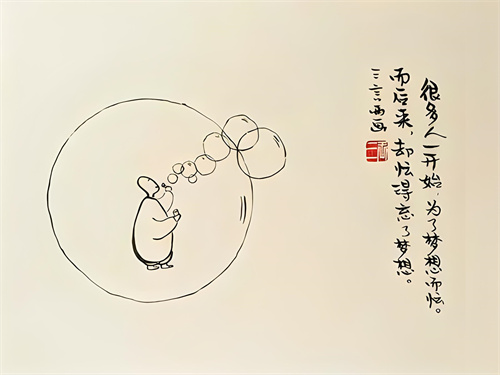 很多人一开始，为了梦想而忙。
而后来，却忙得忘了梦想。
三言两画